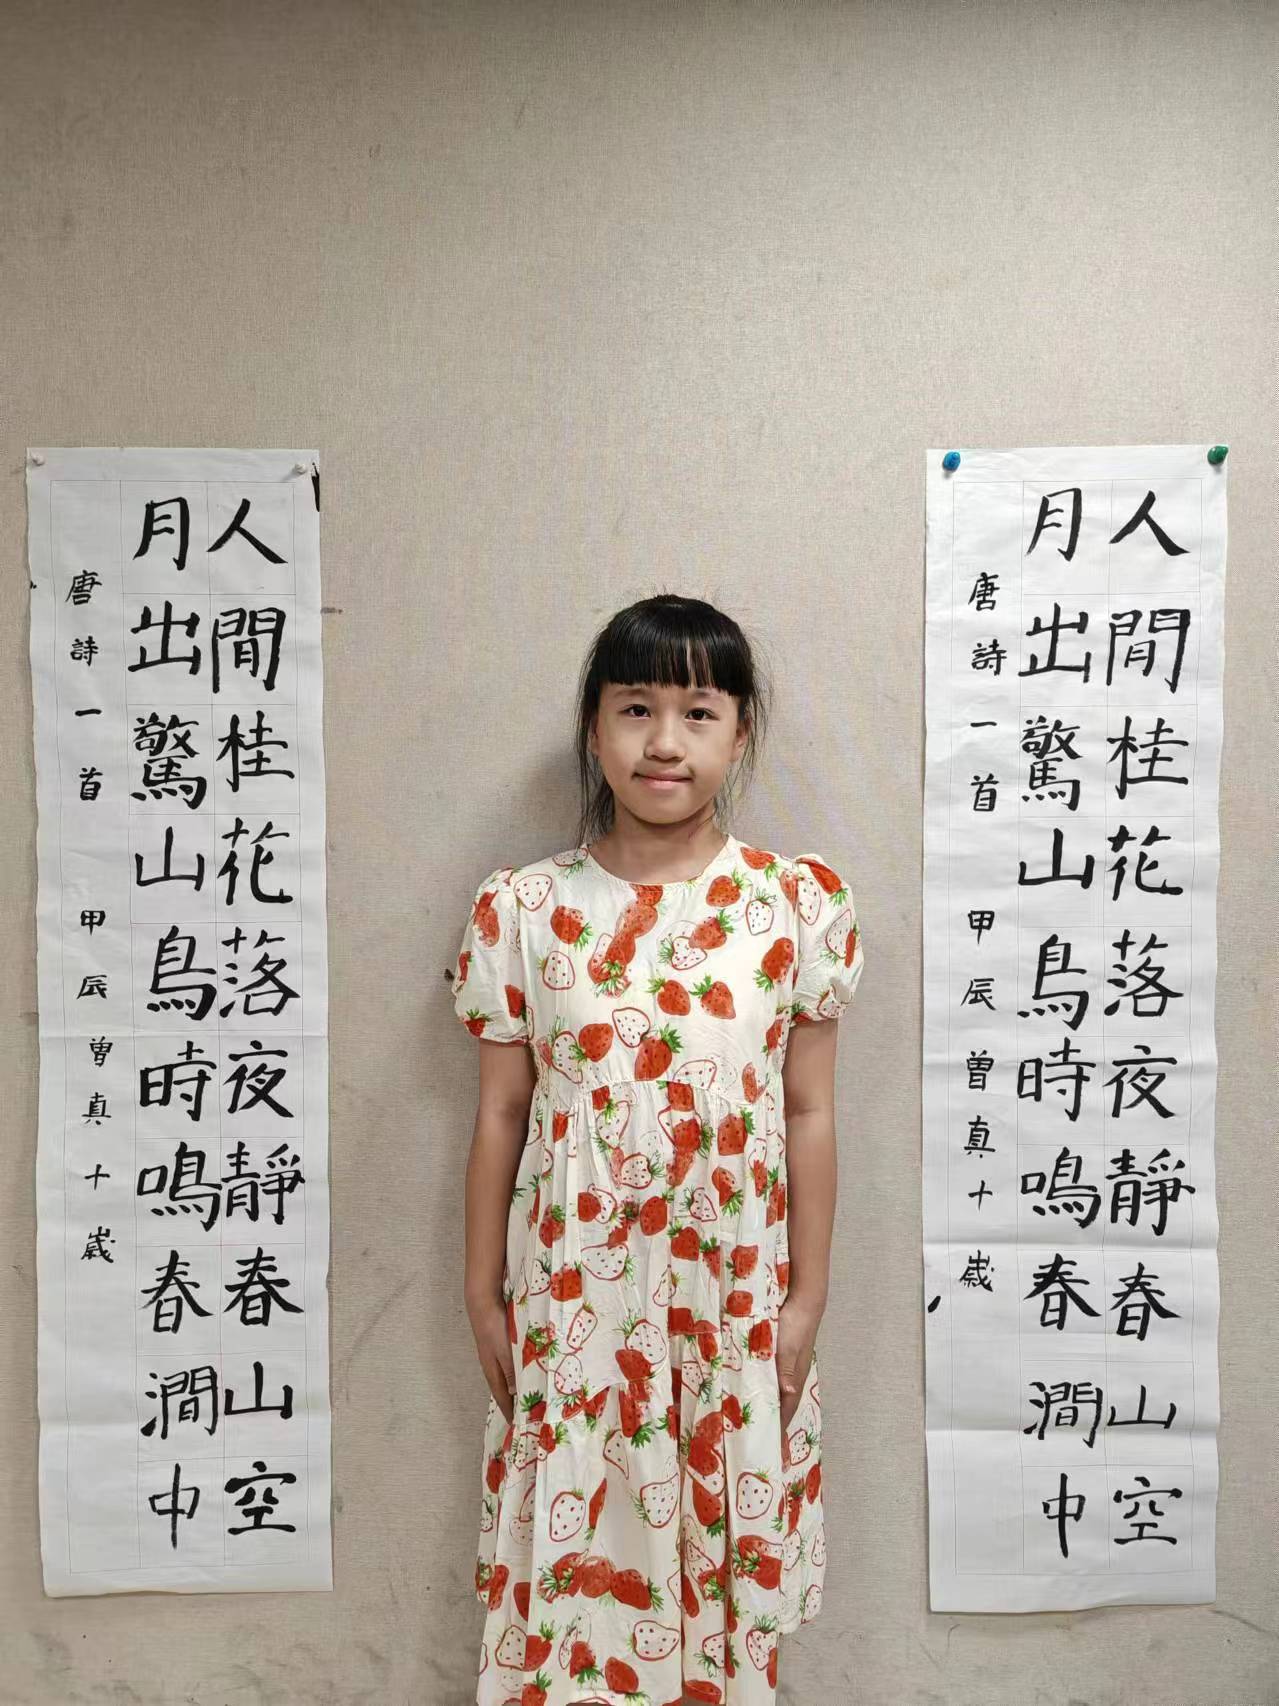 人閒桂花落夜靜春山空
月出驚山鳥時鳴春澗中
唐詩一首 甲辰曾真十歲
人閒桂花落夜靜春山空
月出驚山鳥時鳴春澗中
唐詩一首 甲辰曾真十歲